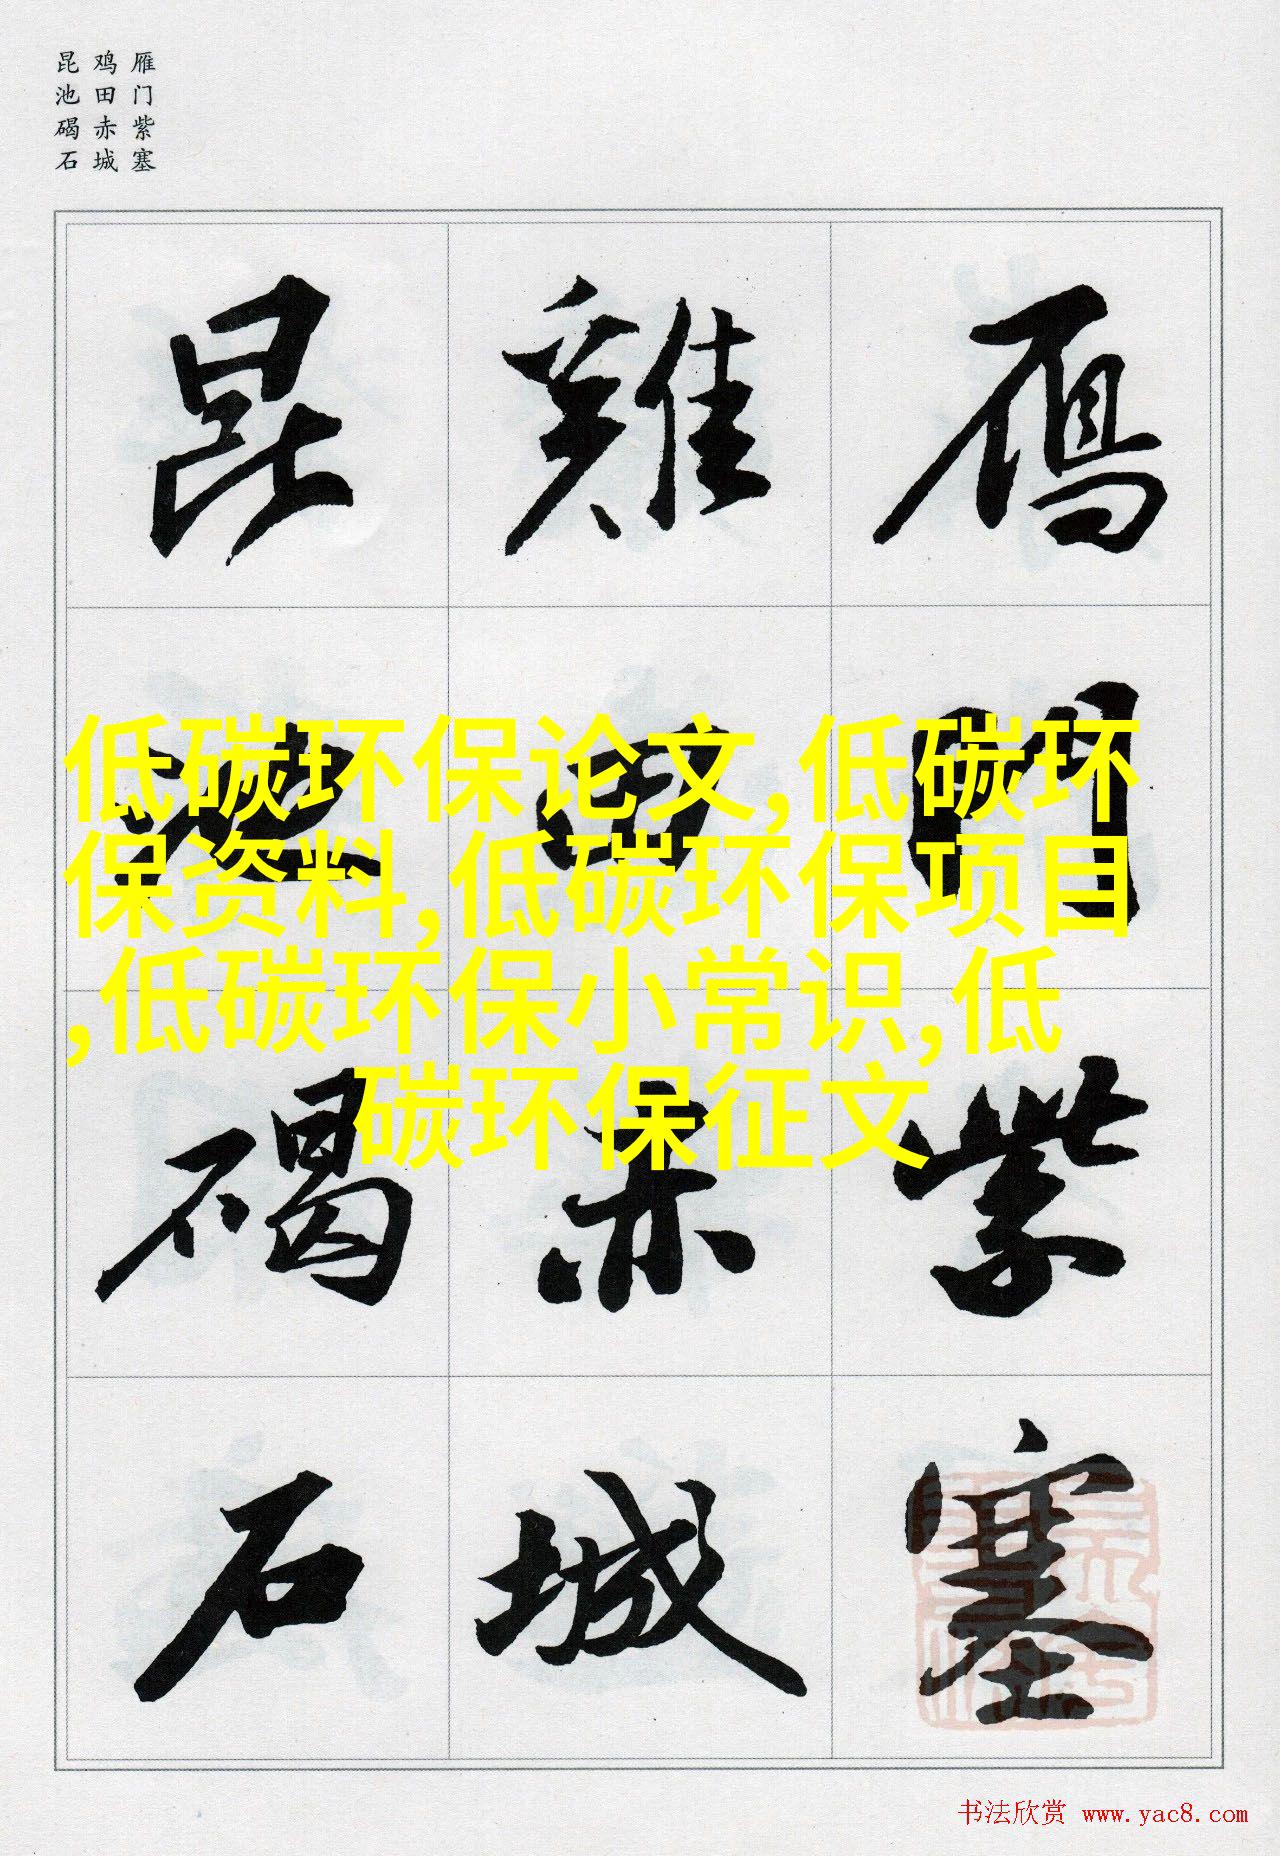 雁门紫塞
鸡田赤城
昆池碣石
鴈門紫塞
雞田赤城
昆池碣石
低碳环保论文,低碳环
保资料,低碳环保项目
,低碳环保小常识,低
碳环保征文
书法欣赏 www.yac8.com